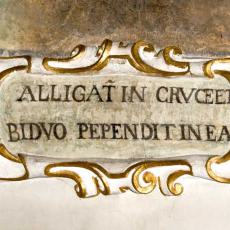 ALLIGAT̃ IN CRVCE ET
BIDVO PEPENDIT IN EA